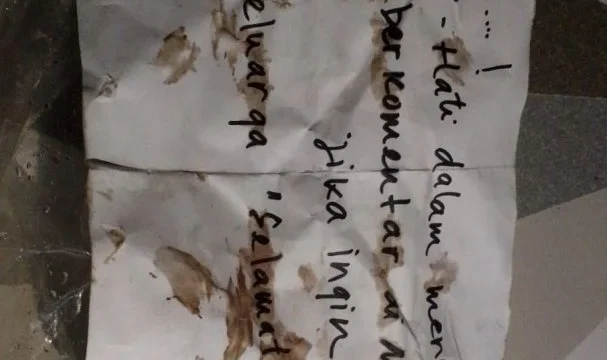 ....!
- Hati dalam men
berkomentar di
jika ingin
eluarga "Selamat